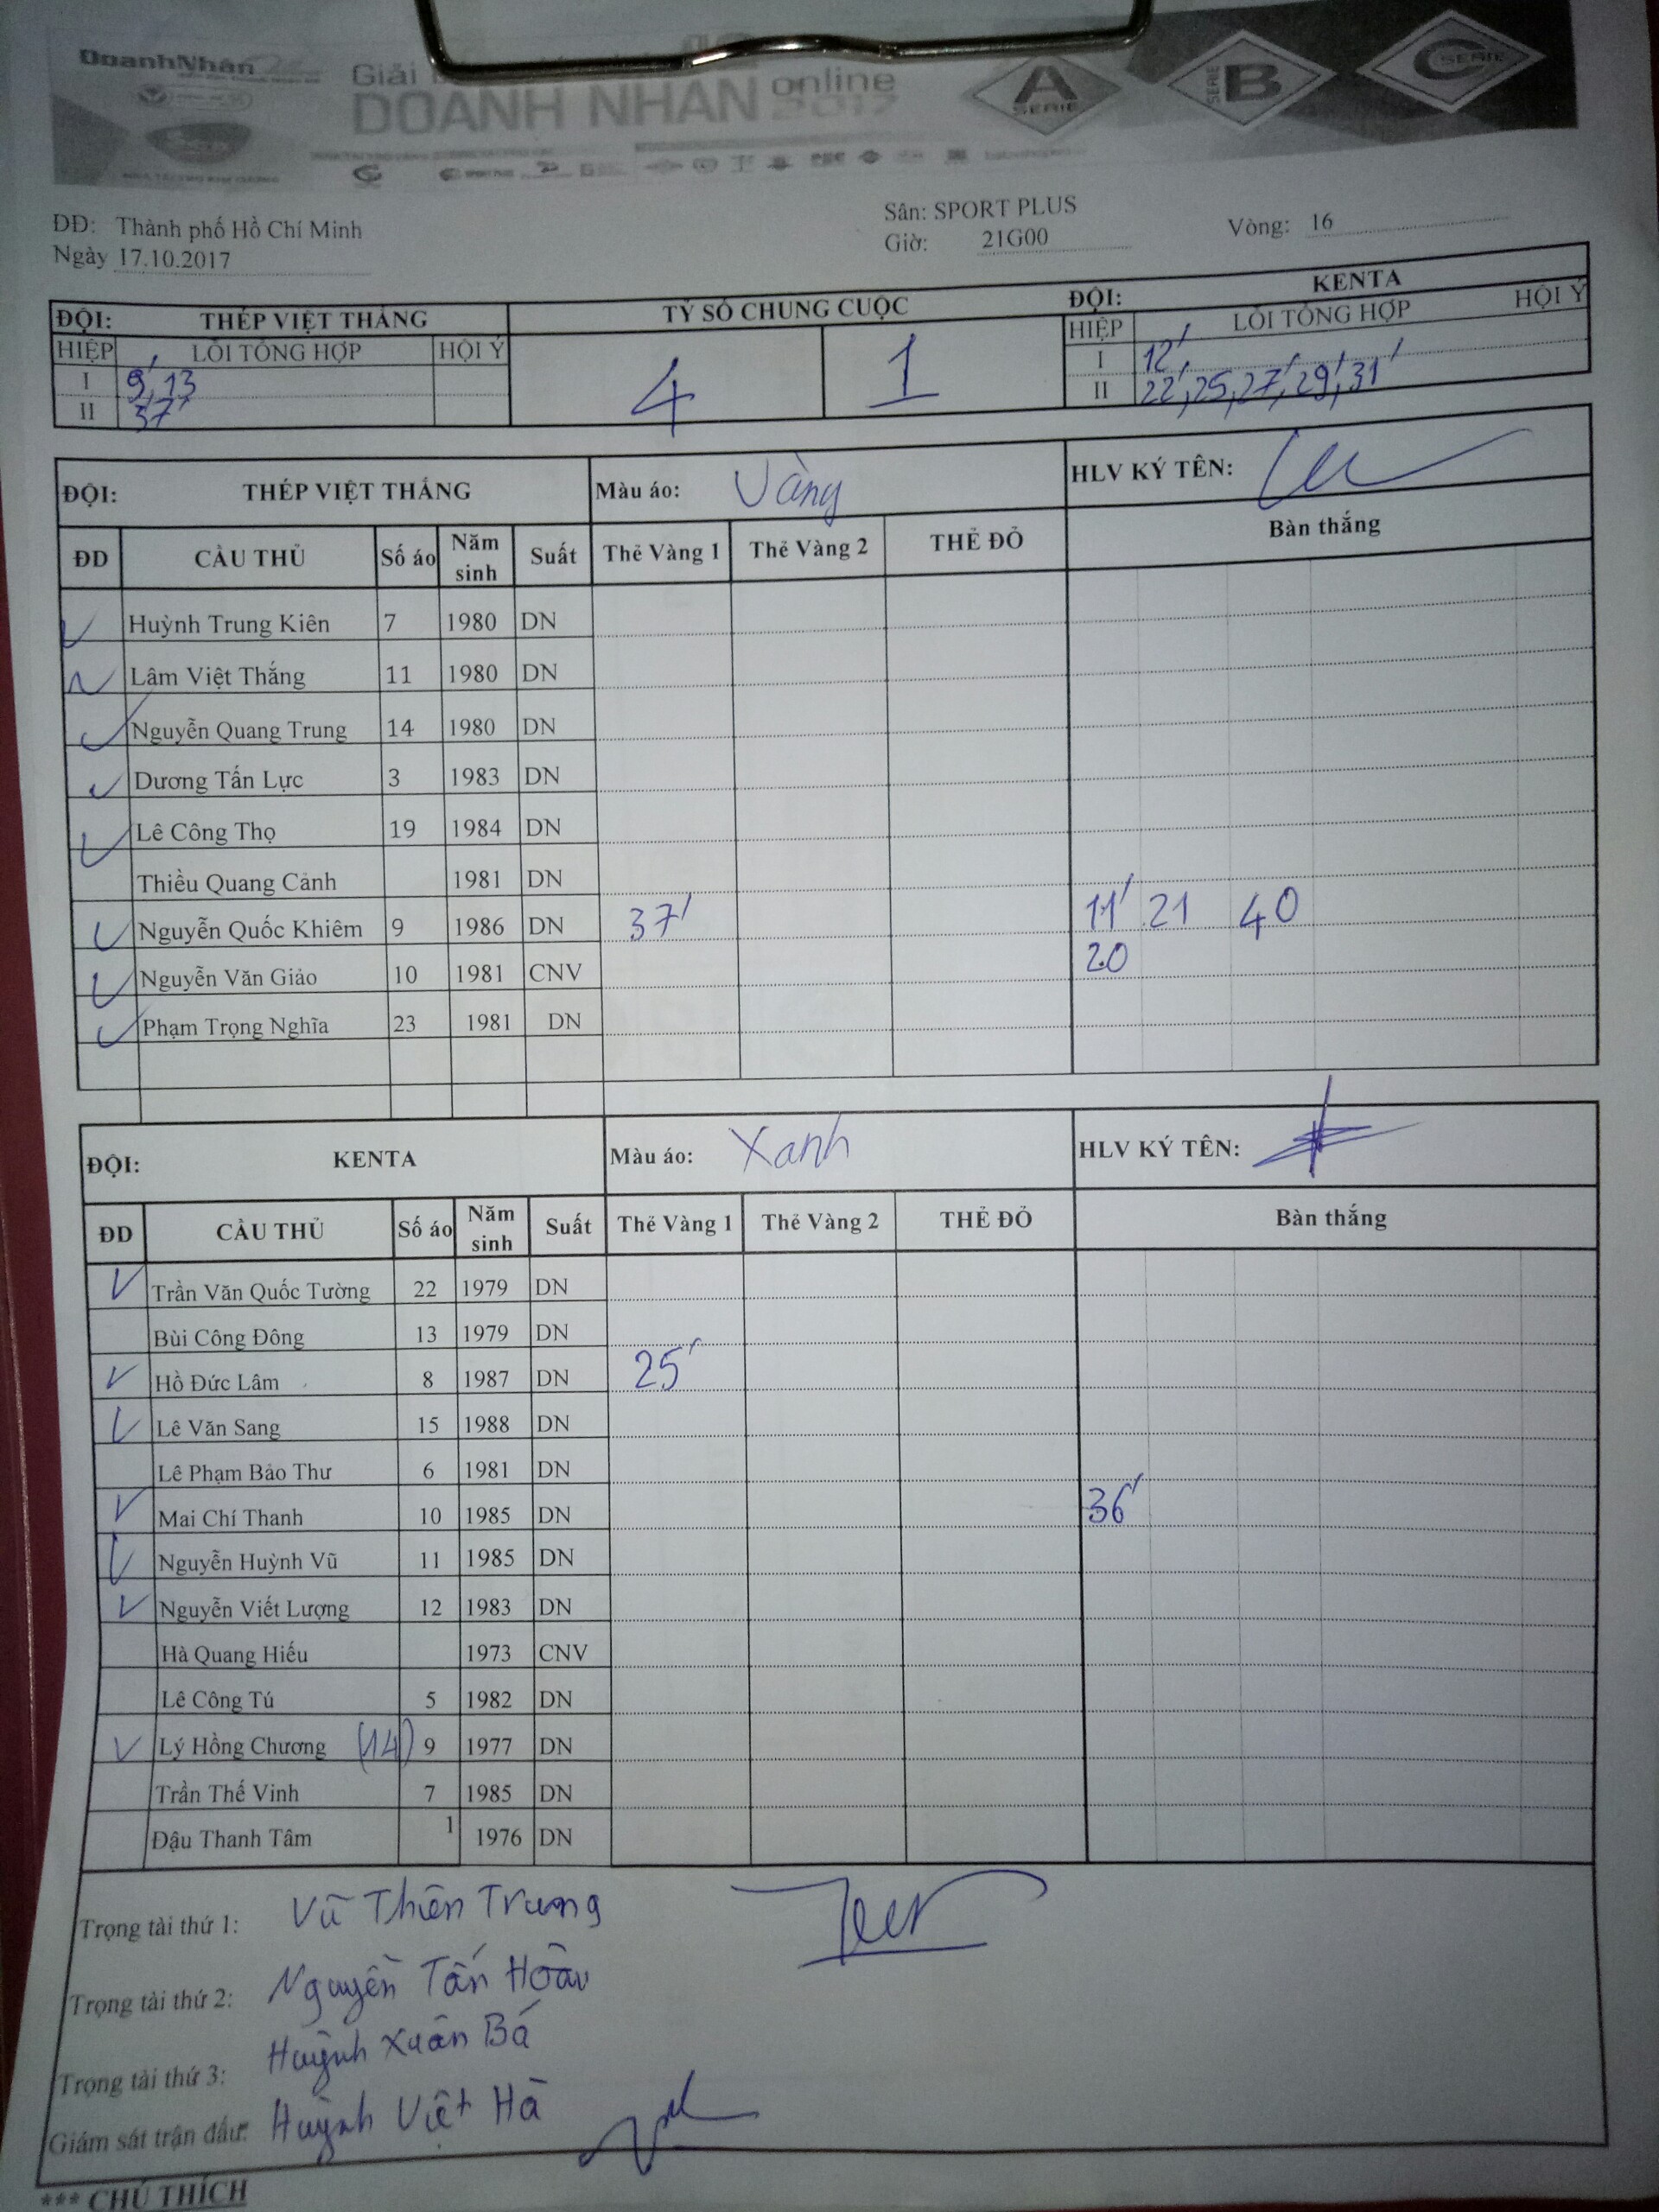 DoanhNhân
Giải
DOANH NHÂN online 2017
A SERIE
SERIE B
C SERIE
ĐĐ: Thành phố Hồ Chí Minh Sân: SPORT PLUS
Ngày 17.10.2017 Giờ: 21G00 Vòng: 16
ĐỘI: THÉP VIỆT THẮNG TỶ SỐ CHUNG CUỘC ĐỘI: KENTA
HIỆP LỖI TỔNG HỢP HỘI Ý 4 1 HIỆP LỖI TỔNG HỢP HỘI Ý
I 9', 13 I 12'
II 37' II 22', 25, 27', 29', 31'
ĐỘI: THÉP VIỆT THẮNG Màu áo: Vàng HLV KÝ TÊN:
ĐD CẦU THỦ Số áo Năm sinh Suất Thẻ Vàng 1 Thẻ Vàng 2 THẺ ĐỎ Bàn thắng
Huỳnh Trung Kiên 7 1980 DN
Lâm Việt Thắng 11 1980 DN
Nguyễn Quang Trung 14 1980 DN
Dương Tấn Lực 3 1983 DN
Lê Công Thọ 19 1984 DN
Thiều Quang Cảnh 1981 DN
Nguyễn Quốc Khiêm 9 1986 DN 37' 11' 21 40
Nguyễn Văn Giảo 10 1981 CNV 20
Phạm Trọng Nghĩa 23 1981 DN
ĐỘI: KENTA Màu áo: Xanh HLV KÝ TÊN:
ĐD CẦU THỦ Số áo Năm sinh Suất Thẻ Vàng 1 Thẻ Vàng 2 THẺ ĐỎ Bàn thắng
Trần Văn Quốc Tường 22 1979 DN
Bùi Công Đông 13 1979 DN
Hồ Đức Lâm 8 1987 DN 25'
Lê Văn Sang 15 1988 DN
Lê Phạm Bảo Thư 6 1981 DN
Mai Chí Thanh 10 1985 DN 36'
Nguyễn Huỳnh Vũ 11 1985 DN
Nguyễn Viết Lượng 12 1983 DN
Hà Quang Hiếu 1973 CNV
Lê Công Tú 5 1982 DN
Lý Hồng Chương (14) 9 1977 DN
Trần Thế Vinh 7 1985 DN
Đậu Thanh Tâm 1 1976 DN
Trọng tài thứ 1: Vũ Thiên Trung
Trọng tài thứ 2: Nguyễn Tấn
Trọng tài thứ 3: Huỳnh Xuân Bá
Giám sát trận đấu: Huỳnh Việt Hà
*** CHÚ THÍCH